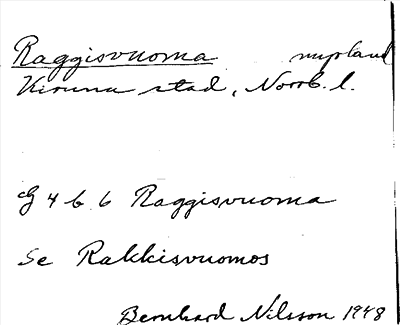 Raggisvuoma myrland
Kiruna stad, Norrb. l.
cf 4 b 6 Raggisvuoma
Se Rakkisvuomos
Bernhard Nilsson 1948